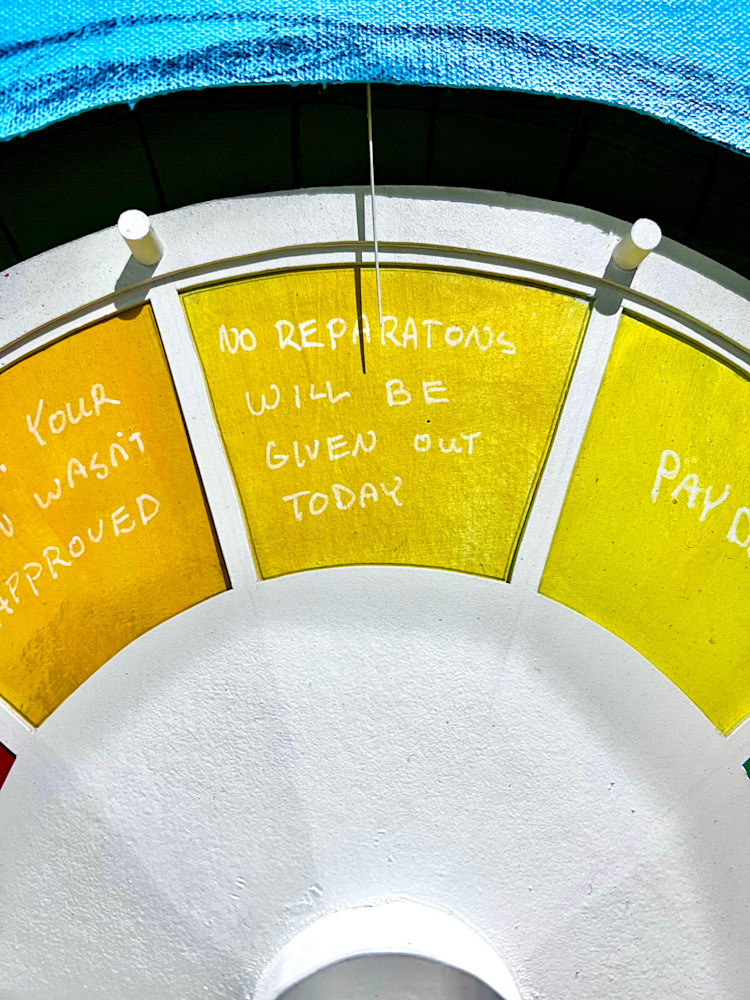 YOUR
WASN'T
APPROVED
NO REPARATONS
WILL BE
GIVEN OUT
TODAY
PAY